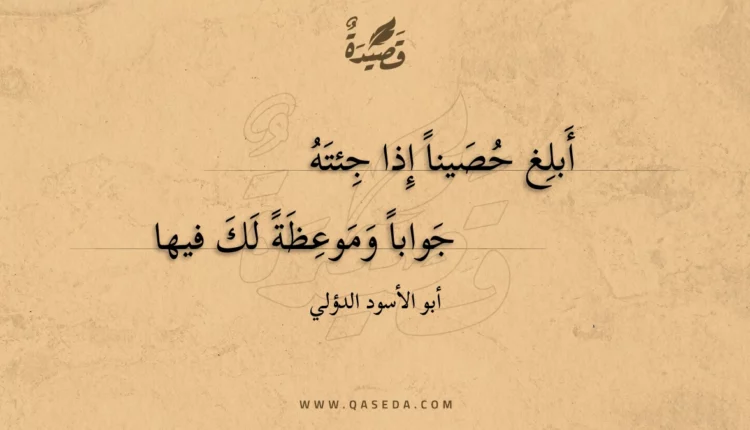 قَصِيْدَةٌ
أَبلِغ حُصَيناً إِذا جِئتَهُ
جَواباً وَمَوعِظَةً لَكَ فيها
أبو الأسود الدؤلي
WWW.QASEDA.COM